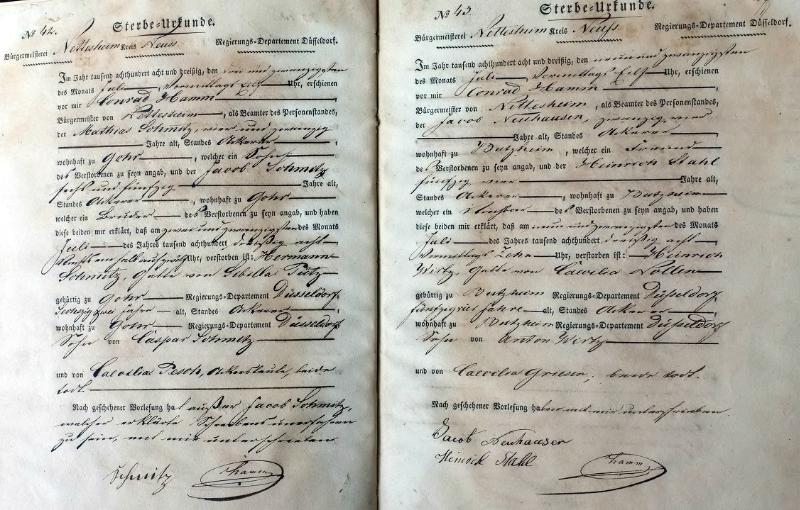 No 42. Sterbe-Urkunde.
Bürgermeisterei Nettesheim Kreis Neuss Regierungs-Departement Düsseldorf.
Im Jahr tausend achthundert acht und dreißig, den drei und zwanzigsten
des Monats Juli Vormittags Eilf Uhr, erschienen
vor mir Conrad Hamm
Bürgermeister von Nettesheim, als Beamter des Personenstandes,
der Mathias Schmitz, vier und zwanzig
Jahre alt, Standes Ackerer
wohnhaft zu Gohr, welcher ein Sohn
des Verstorbenen zu seyn angab, und der Jacob Schmitz
sechs und fünfzig Jahre alt,
Standes Ackerer, wohnhaft zu Gohr
welcher ein Bruder des Verstorbenen zu seyn angab, und haben
diese beiden mir erklärt, daß am zwei und zwanzigsten des Monats
Juli des Jahres tausend achthundert dreißig acht
Uhr, verstorben ist: Hermann
Schmitz, Gatte von Sibella
gebürtig zu Gohr Regierungs-Departement Düsseldorf
Sechszig zwei Jahre alt, Standes Ackerer
wohnhaft zu Gohr Regierungs-Departement Düsseldorf
Sohn von Caspar Schmitz
und von Caecilia Pesch, Ackersleute, beide
todt.
Nach geschehener Vorlesung hat außer Jacob Schmitz,
welcher erklärte Schreibens unerfahren
zu sein, mit mir unterschrieben
Schmitz Hamm
No 43. Sterbe-Urkunde.
Bürgermeisterei Nettesheim Kreis Neuß Regierungs-Departement Düsseldorf.
Im Jahr tausend achthundert acht und dreißig, den neun und zwanzigsten
des Monats Juli Vormittags Eilf Uhr, erschienen
vor mir Conrad Hamm
Bürgermeister von Nettesheim, als Beamter des Personenstandes,
der Jacob Neuhausen, zwanzig vier
Jahre alt, Standes Ackerer
wohnhaft zu Butzheim, welcher ein
des Verstorbenen zu seyn angab, und der Heinrich Stahl
fünfzig vier Jahre alt,
Standes Ackerer, wohnhaft zu Butzheim
welcher ein Nachbar des Verstorbenen zu seyn angab, und haben
diese beiden mir erklärt, daß am neun und zwanzigsten des Monats
Juli des Jahres tausend achthundert dreißig acht
Vormittags Zehn Uhr, verstorben ist: Heinrich
Wirtz, Gatte von Caecilia Nollen
gebürtig zu Butzheim Regierungs-Departement Düsseldorf
Jahre alt, Standes Ackerer
wohnhaft zu Butzheim Regierungs-Departement Düsseldorf
Sohn von Anton Wirtz
und von Caecilia Griesen, beide todt.
Nach geschehener Vorlesung haben mit mir unterschrieben
Jacob Neuhausen
Heinrich Stahl Hamm